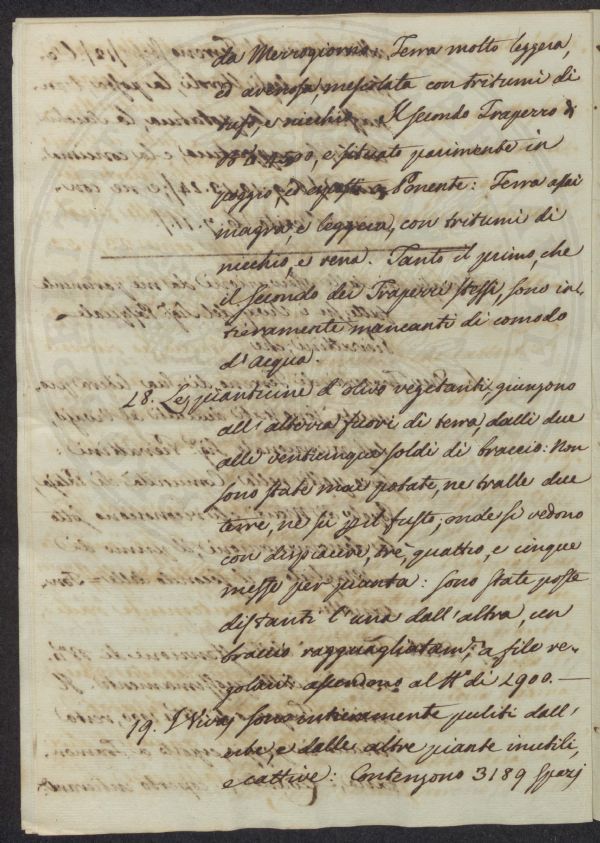 da Mezzogiorno. Terra molto leggera,
ed arenosa, mescolata con tritumi di
tufo, e nicchio. Il secondo Trapezzo di
B. 4500, è situato parimente in
poggio, ed esposto a Ponente: Terra assai
magra, e leggera, con tritumi di
nicchio, e rena. Tanto il primo, che
il secondo dei Trapezzi stessi, sono in-
tieramente mancanti di comodo
d'Acqua.
18. Le pianticine d'olivo vegetanti, giungono
all'altezza fuori di terra dalli due
alli venticinque soldi di braccio: Non
sono state mai potate, ne tralle due
terre, ne su p. il fusto; onde si vedono
con dispiacere, trè, quattro, e cinque
messe per pianta: sono state poste
distanti l'una dall'altra, un
braccio ragguagliatam.e a file re-
golari ascendono al N.o di 2900. —
19. I Vivaj sono intieramente puliti dall'
erbe, e dalle altre piante inutili,
e cattive: Contengono 3189 spazj